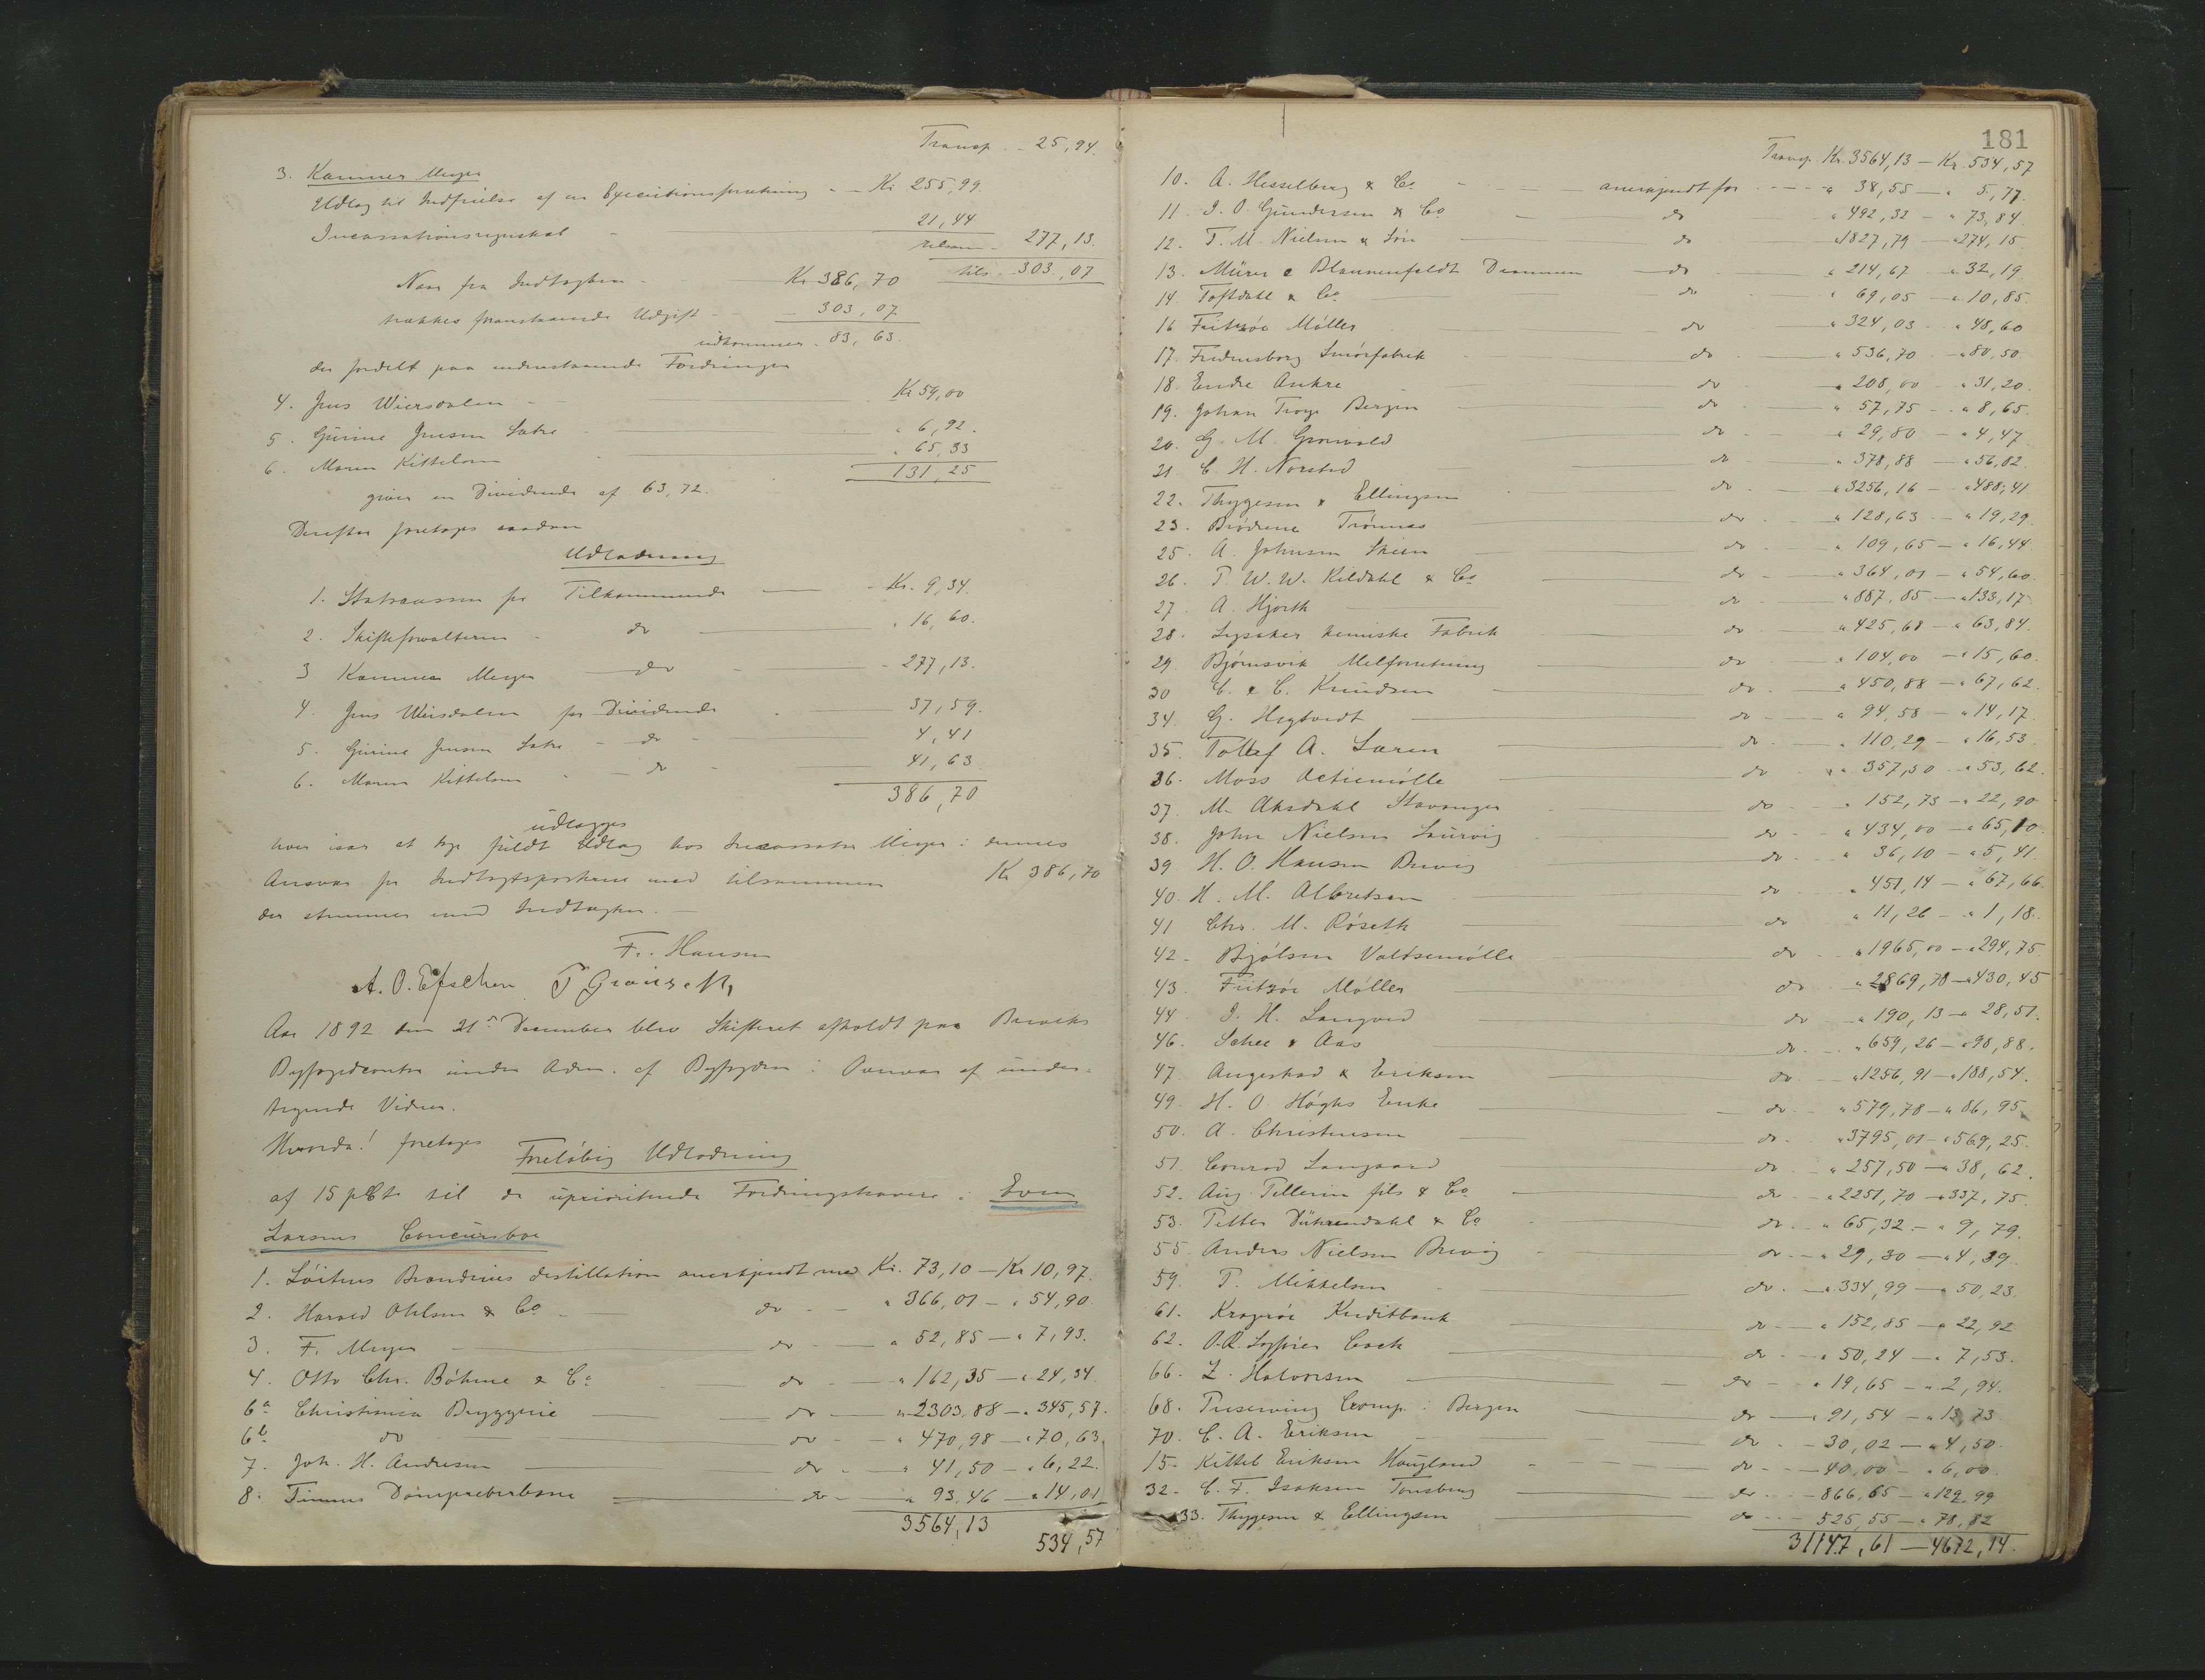 Transp. - 25,94.
3. Kæmner Meyer
Udlag til Indfrielse af en Executionsforretning - - Kr. 255,99.
Incassationsregnskab - 21,44
tilsam - 277,13.
tils. 303,07
Naar fra Indtægten - Kr 386,70
trækkes foranstaaende Udgift - 303,07
udkommer - 83,63.
der fordelt paa nedenstaaende Fordringer
4. Jens Wiersdalen - - Kr 59,00
5. Gurine Jensen Satre " 6,92.
6. Maren Kittelsen " 65,33
131,25
giver en Dividende af 63,72.
Derefter foretoges saadan
Udlodning
1. Statscassen for Tilkommende Kr. 9,34.
2. Skifteforvalteren - do " 16,60.
3 Kæmner Meyer do - 277,13.
4. Jens Wiersdalen for Dividende 37,59.
5. Gurine Jensen Satre - do - 4,41
6. Maren Kittelsen - do - 41,63
386,70
udlægges
hver især at tage fuldt Udlæg hos Incassator Meyer i dennes
Ansvar for Indtægtsposterne med tilsammen Kr 386,70
der stemmer med Indtægten. -
Fr. Hansen
A. O. Efschen P Grönseth,
Aar 1892 den 21de December blev Skifteret afholdt paa Breviks
Byfogedcontor under Adm. af Byfogden i Overvær af under-
tegnede Vidner.
Hvorda! foretoges
Foreløbig Udlodning
af 15 pCt. til de uprioriterede Fordringshavere i Even
Larsens Concursbo
1. Löitens Brænderies destillation anerkjendt med Kr. 73,10 - Kr 10,97.
2. Harald Ohlsen & Co - do - " 366,01 - " 54,90.
3. F. Meyer do - " 52,85 - " 7,93.
4. Otto Chr. Böhme & Co do - " 162,35 - " 24,34.
6a Christiania Bryggerie do - " 2303,88 - " 345,57.
6b do do - " 470,98 - " 70,63.
7. Joh. H. Andresen do - " 41,50 - " 6,22.
8. Tinnes Dampkeberbane do - " 93,46 - " 14,01
3564,13 534,57
181
Transp. Kr. 3564,13 - Kr. 534,57
10. A. Hesselberg & Co - anerkjendt for - " 38,55 - " 5,77.
11. J. O. Gundersen & Co - do " 492,32 - " 73,84.
12. T. M. Nielsen & Sön do " 1827,79 - " 274,15.
13. Mürer & Blannenfeldt Drammen do " 214,67 " 32,19.
14. Toftdahl & Co. do " 69,05 - " 10,85.
16 Fritzöe Möller do " 324,03 - " 48,60
17. Fredensborg Smörfabrik do " 536,70 - " 80,50
18. Endre Ankre do " 208,00 - " 31,20.
19. Johan Troye Bergen do " 57,75 - " 8,65.
20. G. M. Gronvold do " 29,80 - " 4,47
21. C. H. Norsted do " 378,88 - " 56,82.
22. Thygesen & Ellingsen do " 3256,16 - " 488,41
23. Brödrene Trönnes do " 128,63 - " 19,29.
25. A. Johnsen Skien do " 109,65 - " 16,44.
26. P. W. W. Kildahl & Co do " 364,01 - " 54,60.
27. A. Hjorth do " 887,85 - " 133,17
28. Lysaker kemiske Fabrik do " 425,68 - " 63,84.
29. Bjørnsvik Melforretning do " 104,00 - " 15,60.
30 C. & C. Knudsen do " 450,88 - " 67,62.
34. G. Hegtvedt do " 94,58 - " 14,17.
35. Tollef A. Laren do " 110,29 - " 16,53.
36. Moss Actiemölle do " 357,50 - " 53,62.
37. M. Aksdahl Stavanger do " 152,73 - " 22,90
38. John Nielsen Laurvig do " 434,00 - " 65,10.
39 H. O. Hansen Brevig do " 36,10 - " 5,41
40. H. M. Albretsen do " 451,14 - " 67,66.
41 Chr. M. Röseth do " 11,26 - " 1,18.
42. Bjölsen Valtsemölle do " 1965,00 - " 294,75.
43. Fritzöe Möller do " 2869,70 - " 430,45
44. J. H. Langved do " 190,13 - " 28,51.
46. Schee & Aas do " 659,26 - " 98,88.
47. Augestad & Eriksen do " 1256,91 - " 188,54.
49. H. O. Höghs Enke do " 579,78 - " 86,95
50. A. Christensen do " 3795,01 - " 569,25.
51. Conrad Langaard do " 257,50 - " 38,62.
52. Aug. Pellerin fils & Co do " 2251,70 - " 337,75.
53. Petter Dührendahl & Co do " 65,32 - " 9,79.
55. Anders Nielsen Brevig do " 29,30 - " 4,39.
59. P. Mikkelsen do " 334,99 - " 50,23.
61. Kragerö Kreditbank do " 152,85 - " 22,92
62. O.R. Cock do " 50,24 - " 7,53.
66. L. Halvorsen do " 19,65 - " 2,94.
68. Preserving Comp. i Bergen do " 91,54 - " 13,73
70. C. A. Eriksen do - 30,02 - " 4,50
15. Kittel Eriksen Haugland do - 40,00 - " 6,00
32. C. F. Isaksen Tønsberg do - 866,65 - " 129,99
33. Thygesen & Ellingsen do - 525,55 - " 78,82
31147,61 - 4672,14.